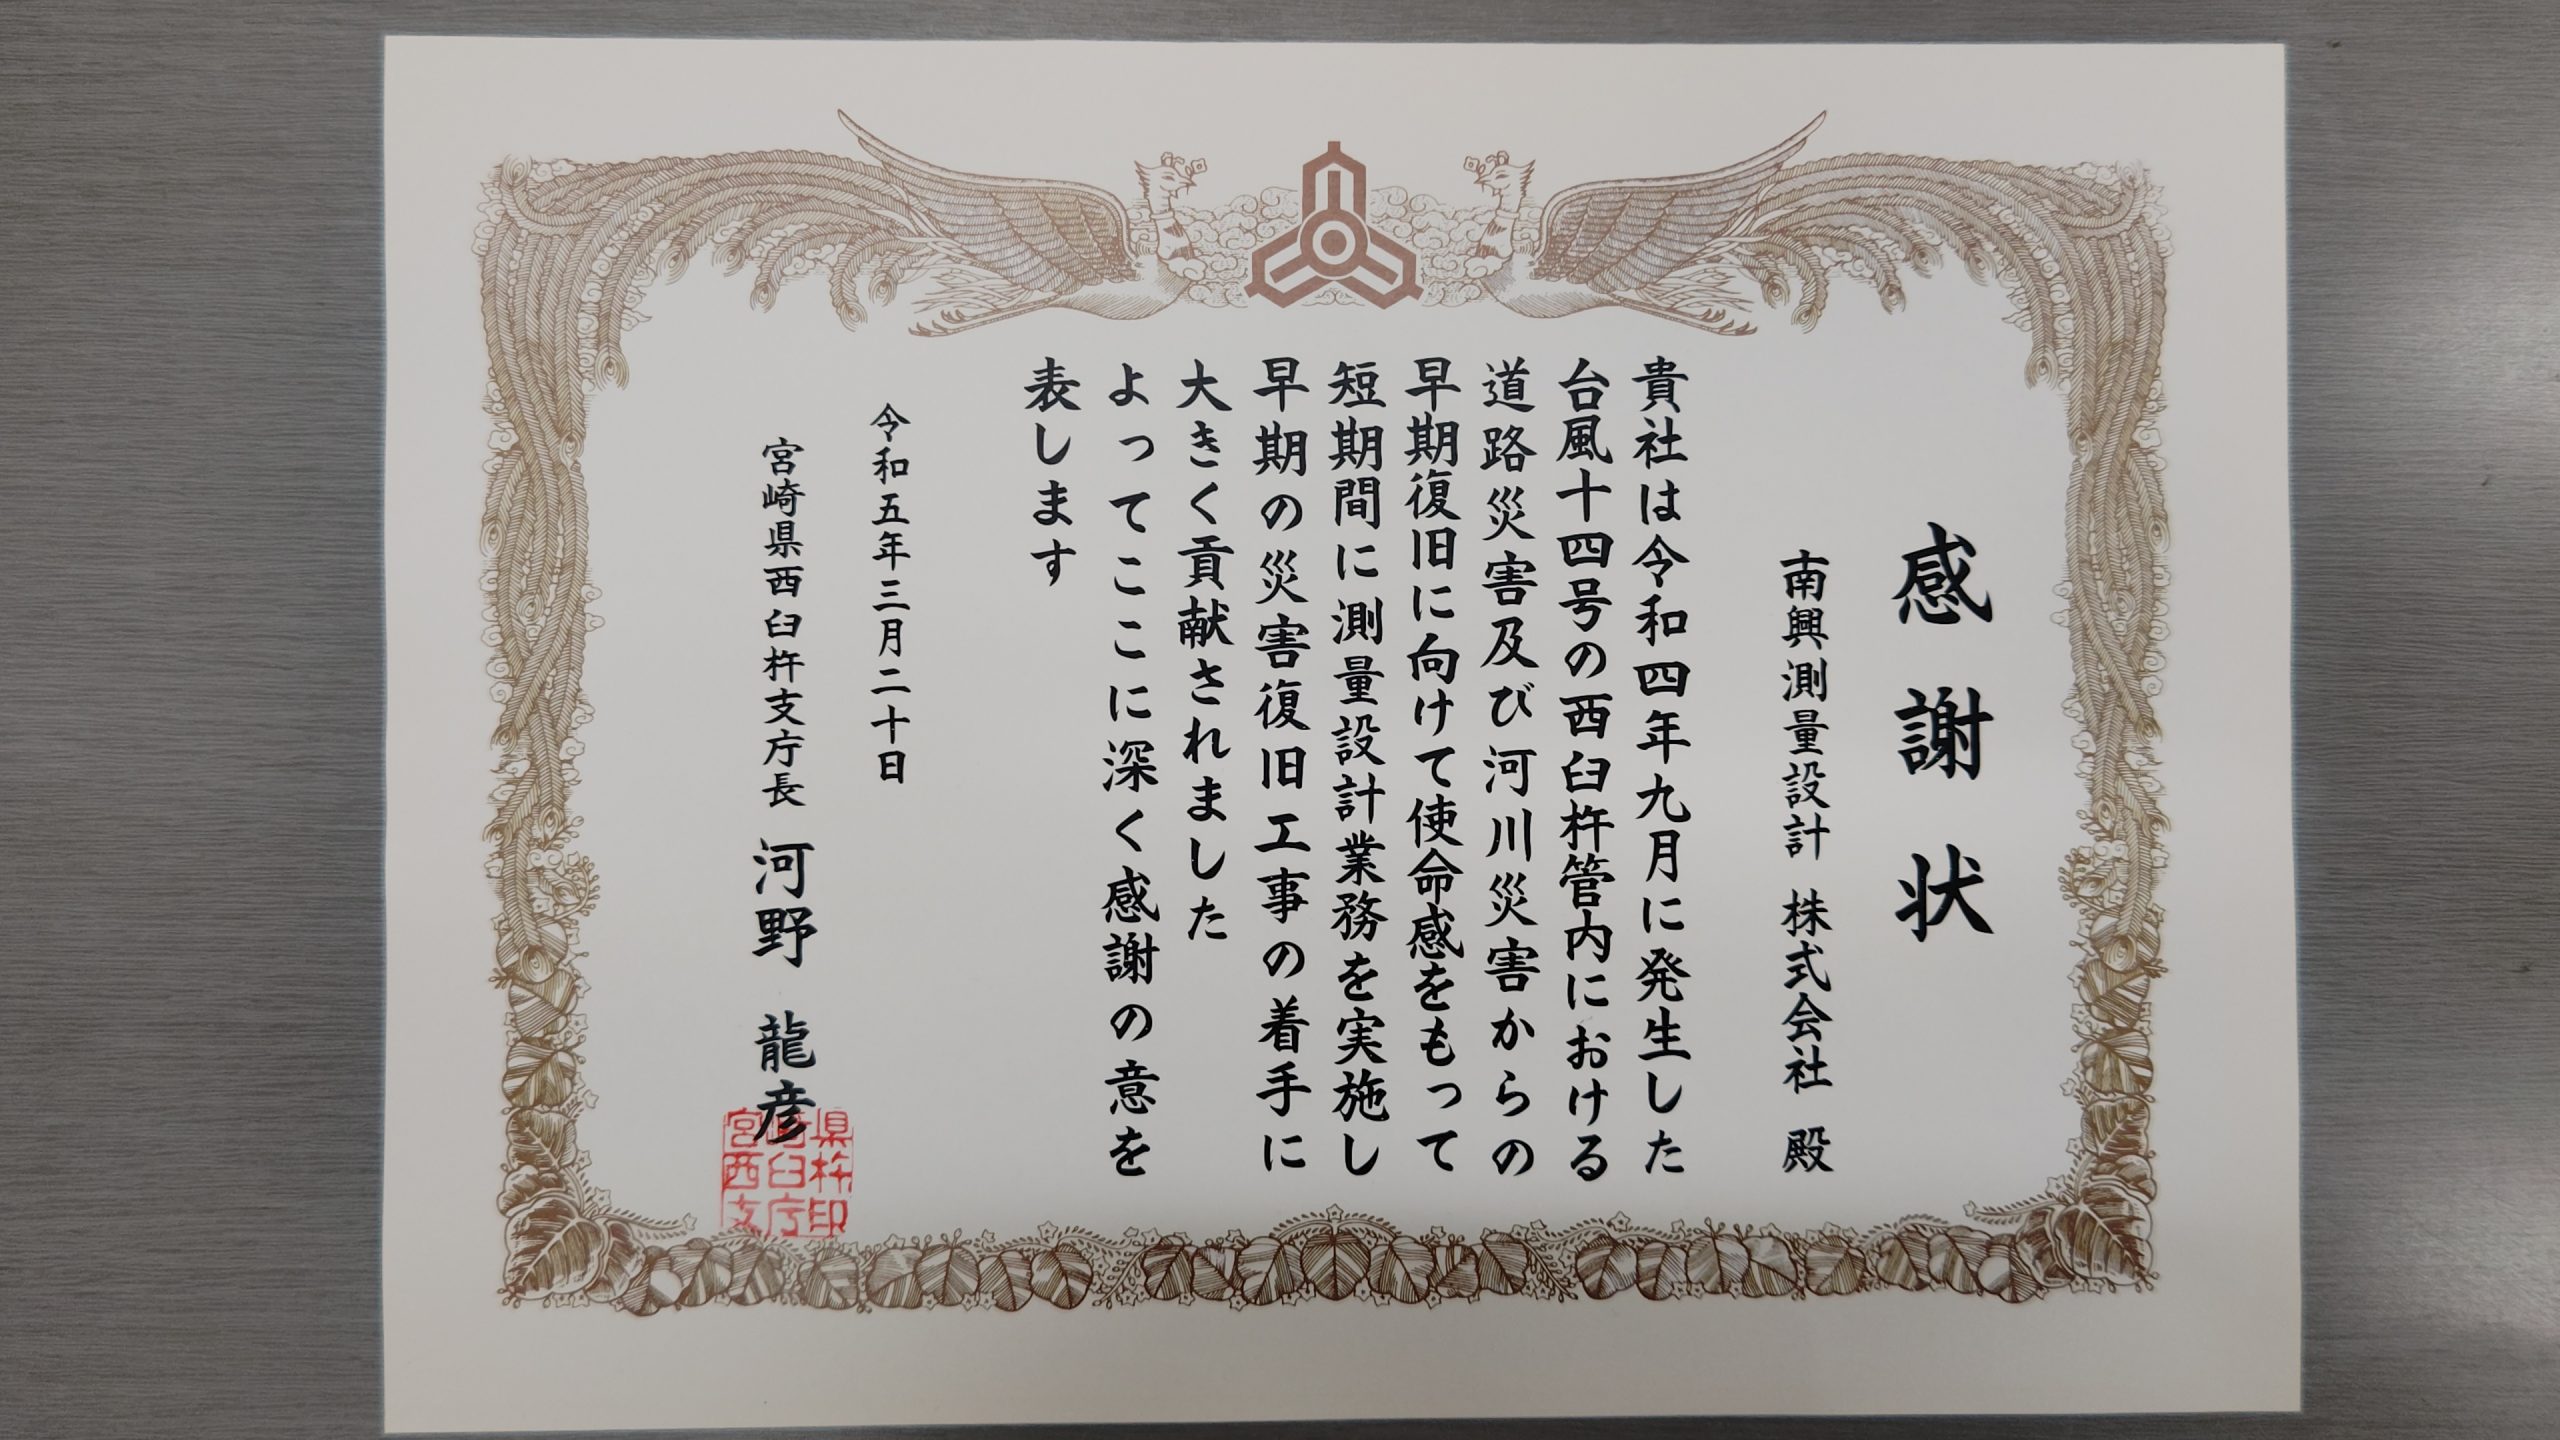 感謝状
南興測量設計 株式会社 殿
貴社は令和四年九月に発生した
台風十四号の西臼杵管内における
道路災害及び河川災害からの
早期復旧に向けて使命感をもって
短期間に測量設計業務を実施し
早期の災害復旧工事の着手に
大きく貢献されました
よってここに深く感謝の意を
表します
令和五年三月二十日
宮崎県西臼杵支庁長 河野 龍彦
宮崎県
西臼杵
支庁印